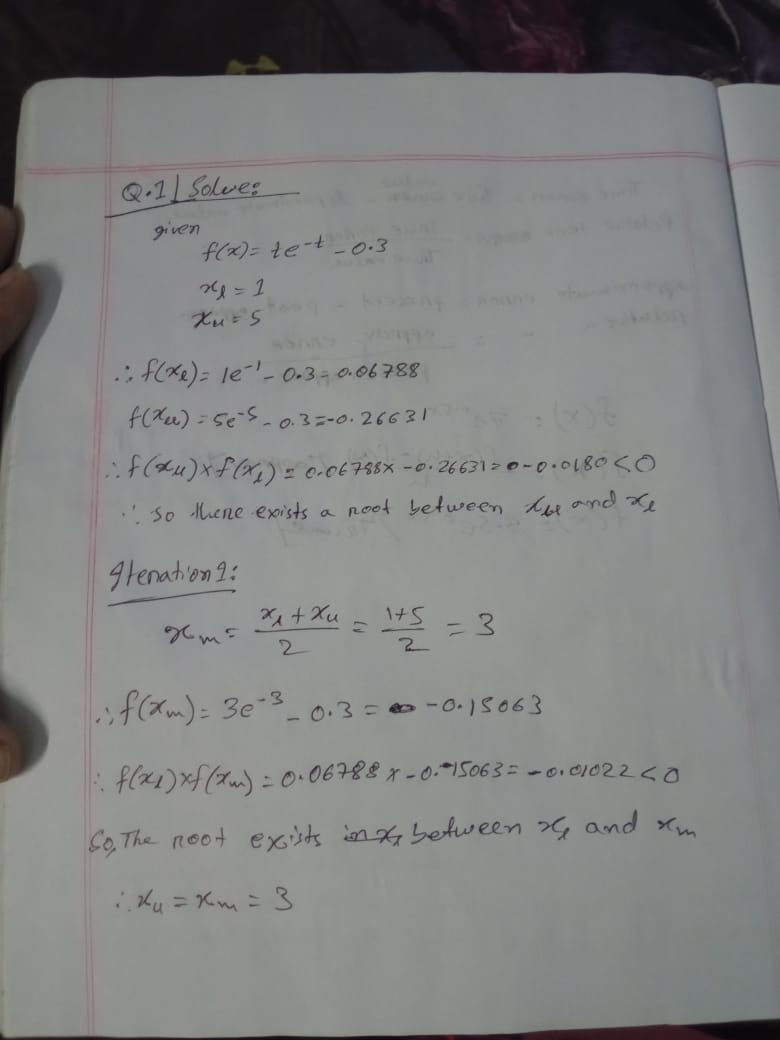 Q.1 | Solve:
given
f(x) = te^-t - 0.3
x_l = 1
x_u = 5
∴ f(x_l) = 1e^-1 - 0.3 = 0.06788
f(x_u) = 5e^-5 - 0.3 = -0.26631
∴ f(x_u) × f(x_l) = 0.06788 × -0.26631 = -0.0180 < 0
∴ so there exists a root between x_u and x_l
Iteration 1:
x_m = (x_l + x_u)/2 = (1+5)/2 = 3
∴ f(x_m) = 3e^-3 - 0.3 = -0.15063
∴ f(x_l) × f(x_m) = 0.06788 × -0.15063 = -0.01022 < 0
So, The root exists between x_l and x_m
∴ x_u = x_m = 3